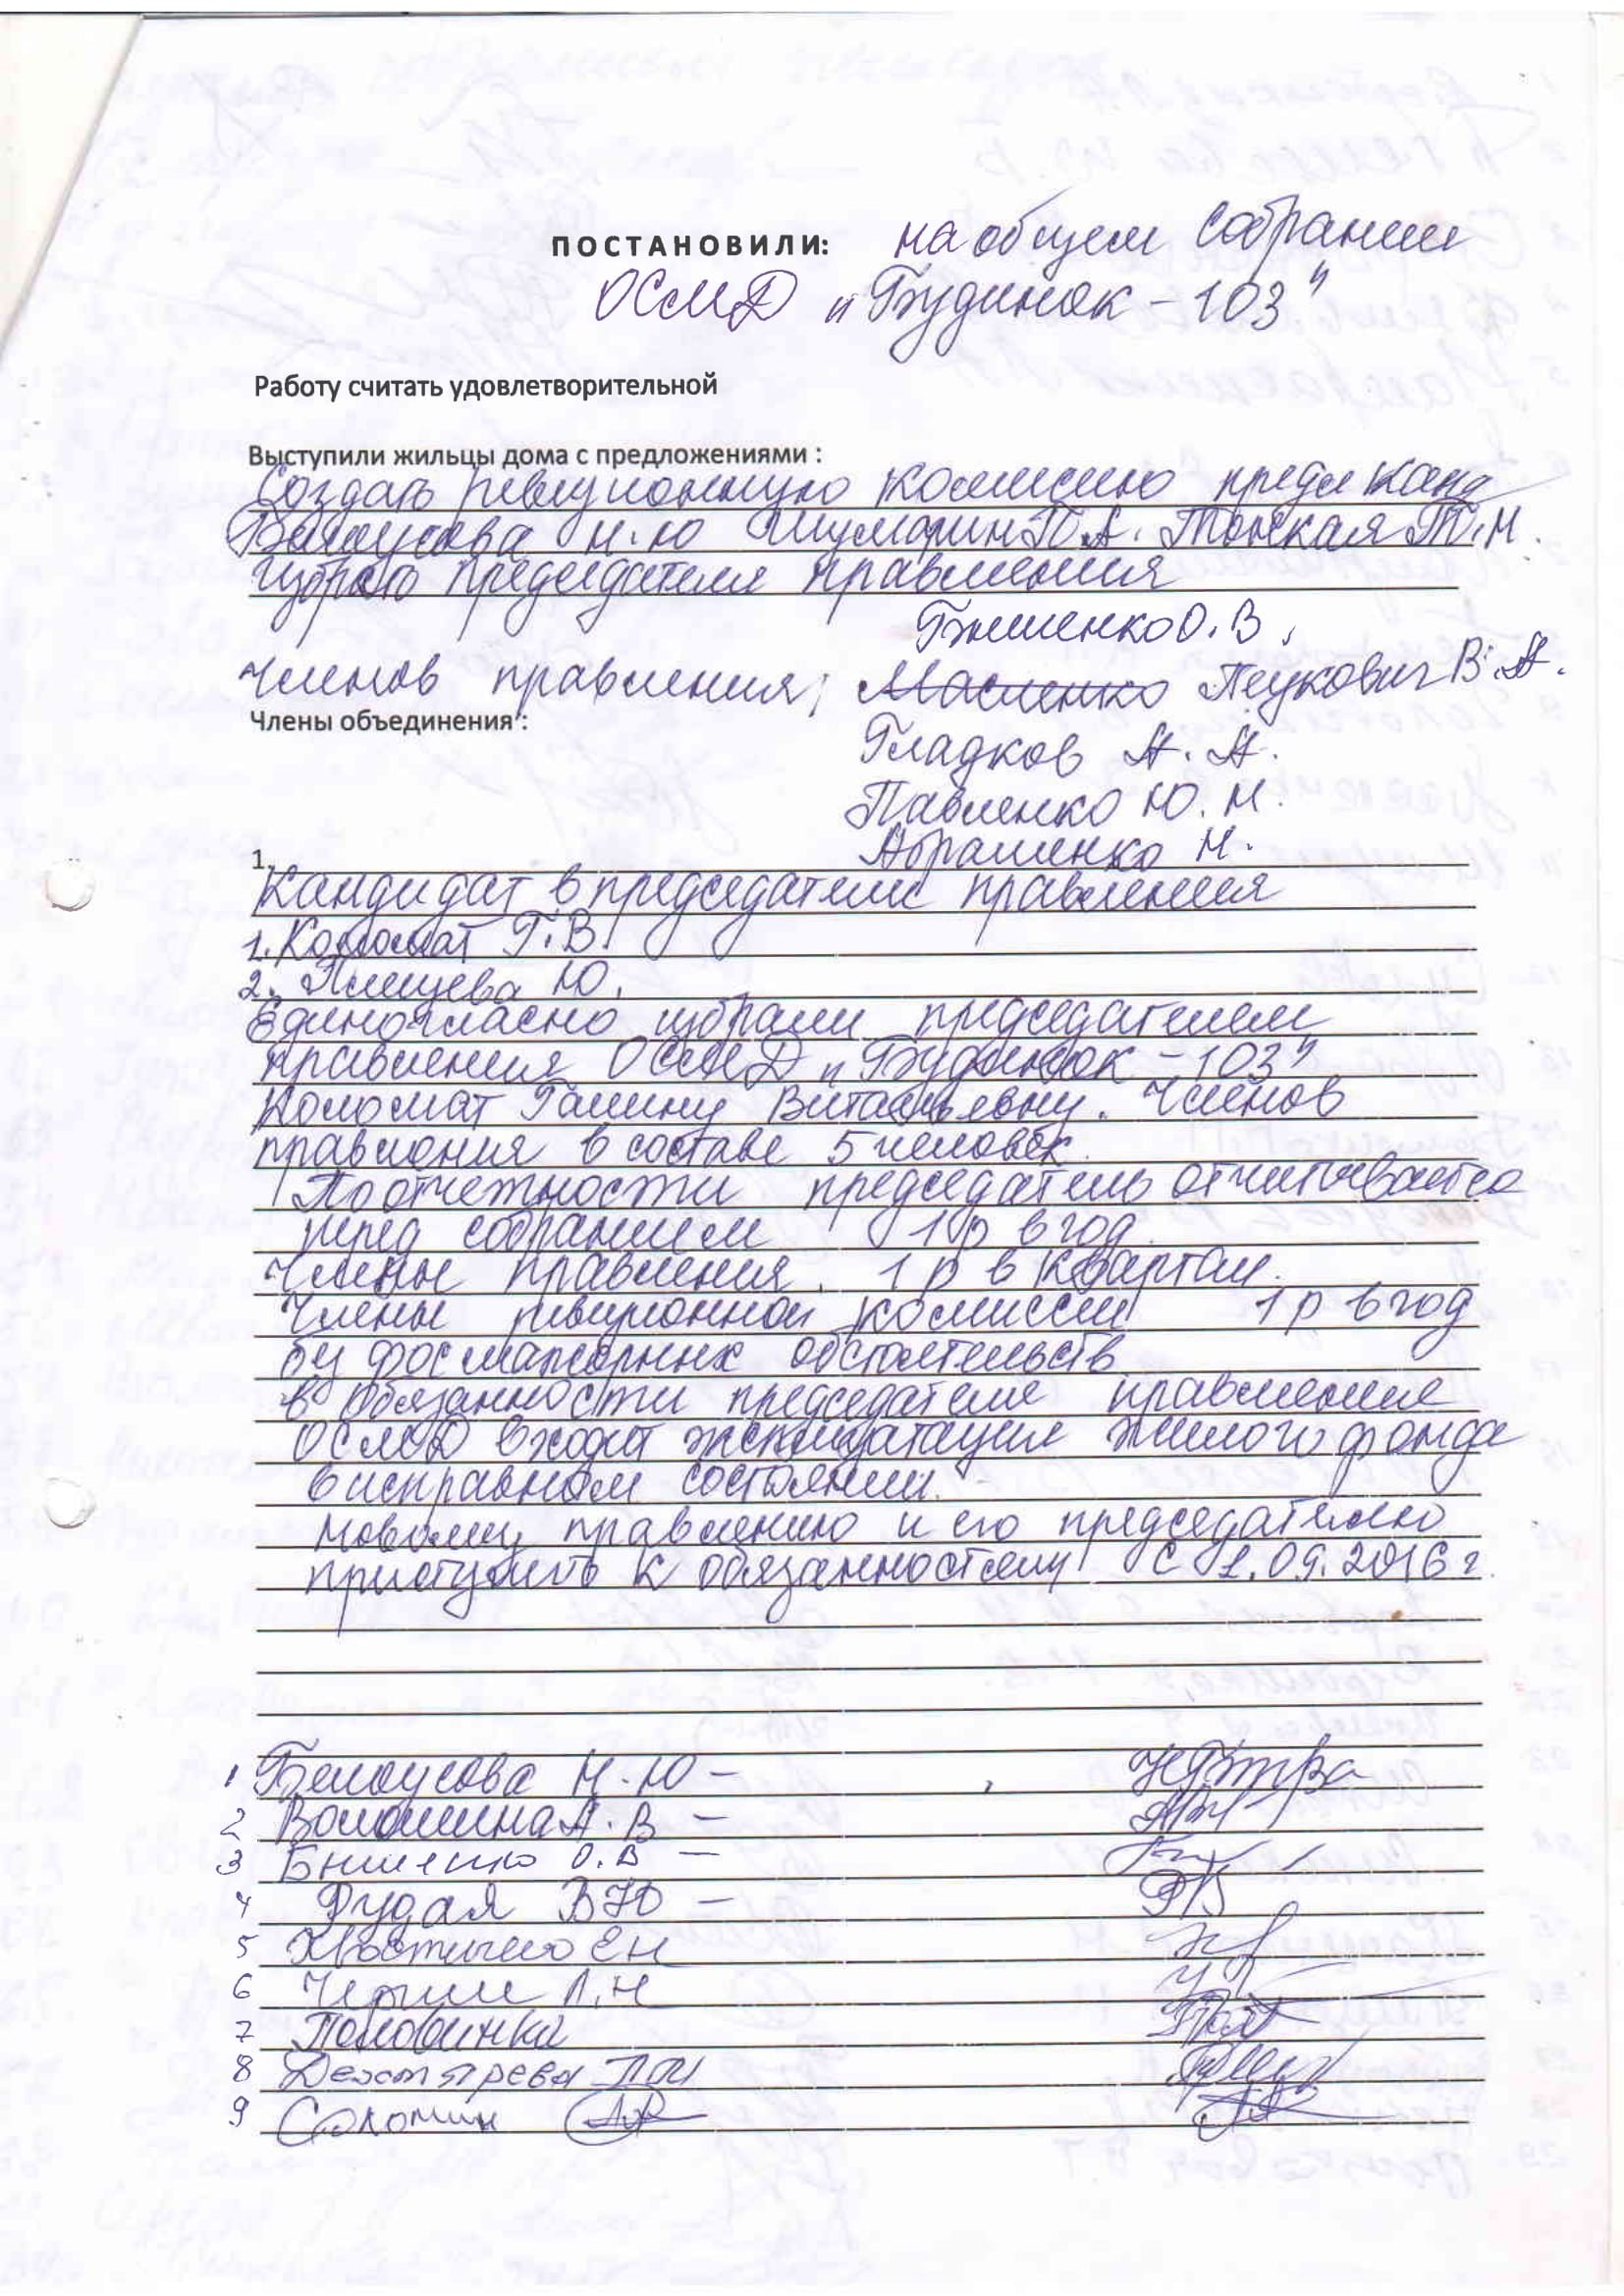 ПОСТАНОВИЛИ: на общем собрании
ОСМД "Будинок - 103"
Работу считать удовлетворительной
Выступили жильцы дома с предложениями :
Создать ревизионную комисию предл канд
Белоусова Н.Ю Шумарин П.А. Тонкая Т.Н.
избрать председателя правления
Бжиленко О.В,
Членов правления; Пецкович В.А.
Члены объединения :
Гладков А.А.
Павленко Ю.Н.
1. Абраменко Н.
Кандидат в председатели правления
1. Коломат Г.В.
2. Ю.
Единогласно избрали председателем
правления ОСМД "Будинок - 103"
Коломат Галину Витальевну. Членов
правления в составе 5 человек.
По отчетности председатель отчитывается
перед собранием 1 р в год.
Члены правления. 1 р в квартал.
Члены ревизионной комиссии 1 р в год
без форсмажорных обстоятельств
в обязанности председателя правления
ОСМД входит эксплуатация жилого фонда
в исправном состоянии.
Новому правлению и его председателю
приступить к обязанностям с 1.09.2016 г.
1 Белоусова Н.Ю -
2 Волошина А.В -
3 О.В -
4 Рудая В Ю -
5 ЕН
6 Л.Н
7 Половинка
8 Дехтярева
9 Соломин